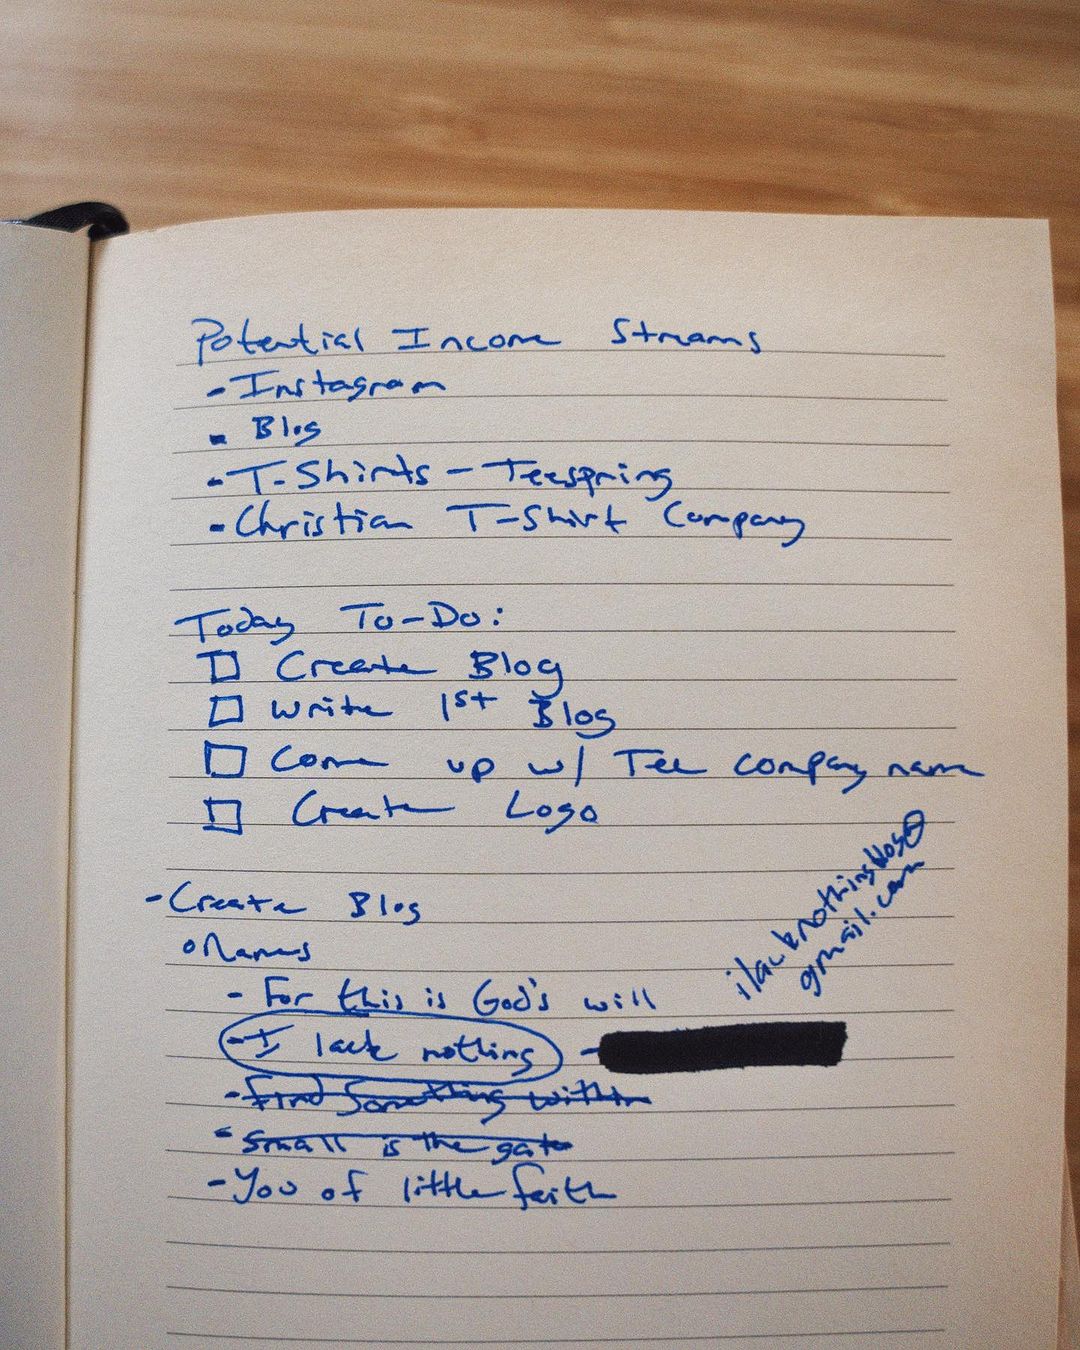 Potential Income Streams
- Instagram
- Blog
- T-Shirts - Teespring
- Christian T-Shirt Company
Today To-Do:
☐ Create Blog
☐ Write 1st Blog
☐ Come up w/ Tee company name
☐ Create Logo
- Create Blog
ilacknothingblog@
gmail.com
o Names
- For this is God's will
- I lack nothing -
- Find Something within
- Small is the gate
- You of little faith